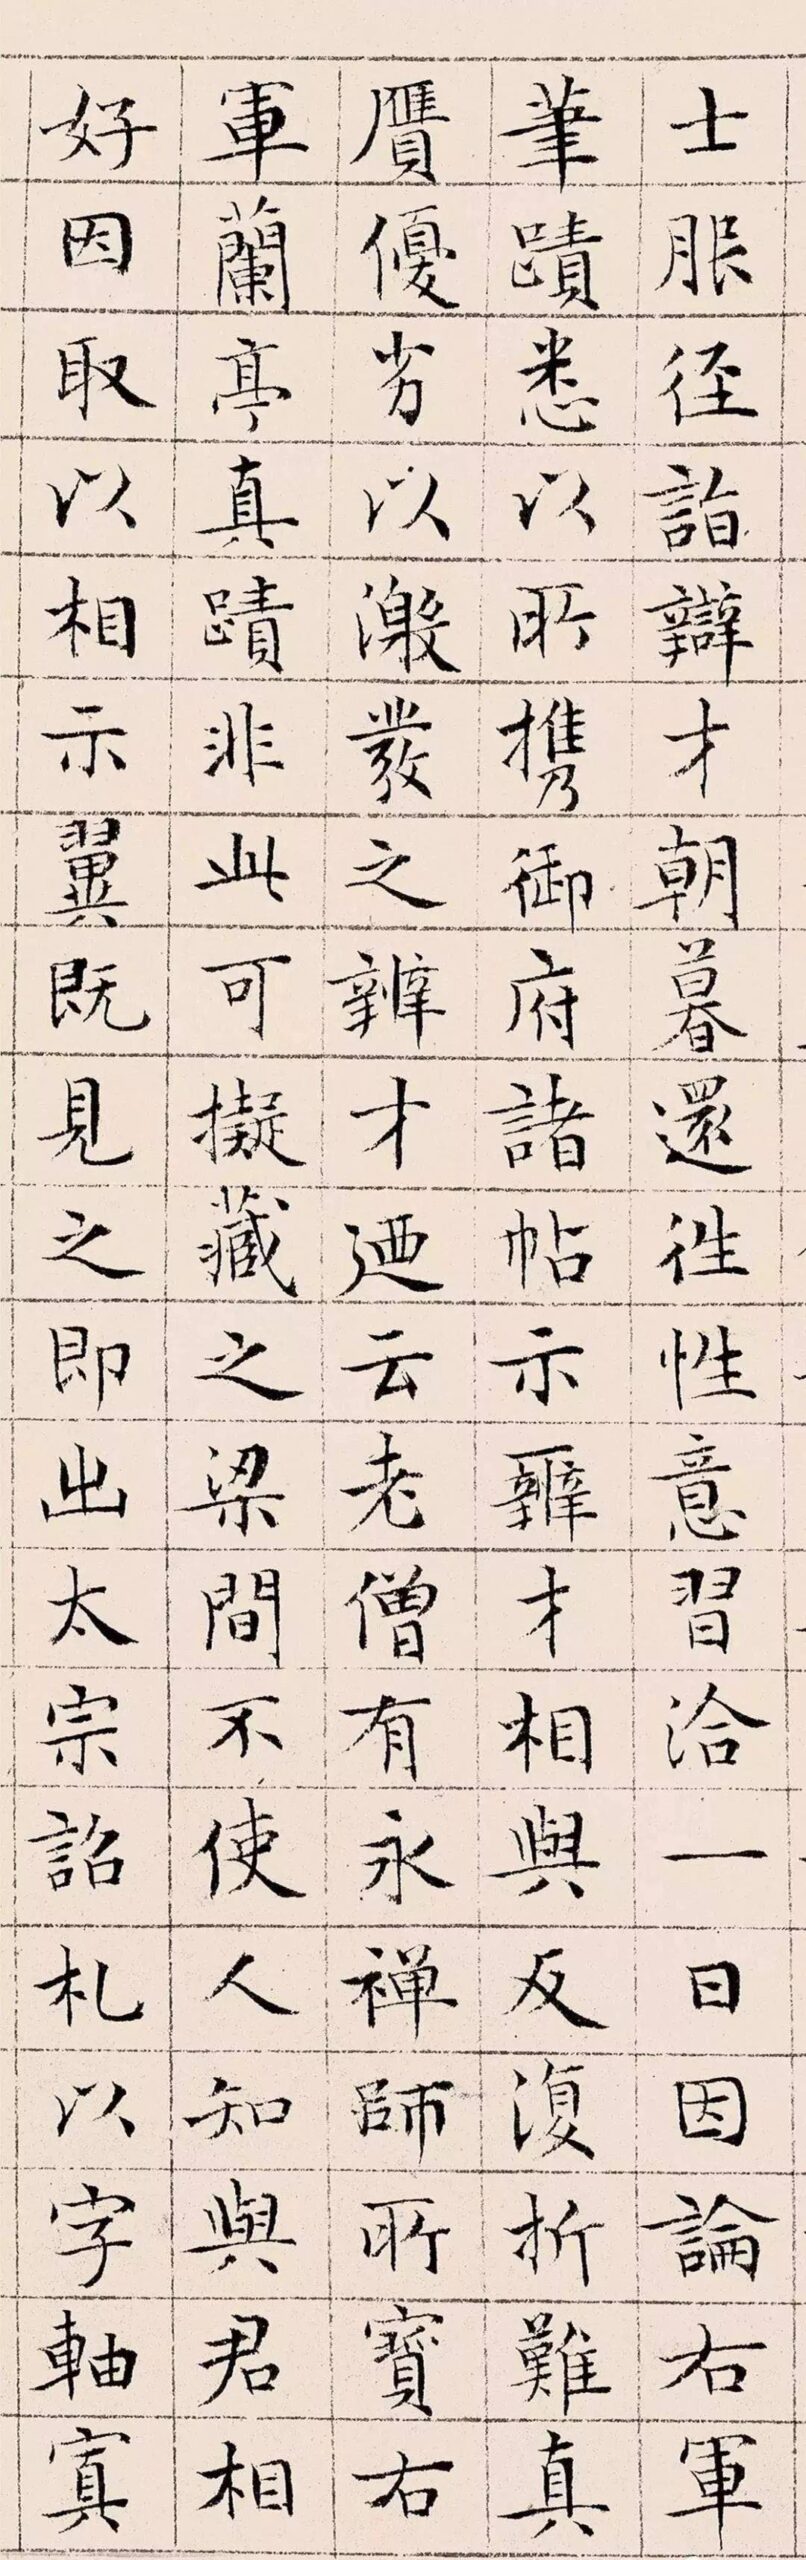 士服径詣辯才朝暮還往性意習洽一日因論右軍
筆蹟悉以所攜御府諸帖示辨才相與反復折難真
贋優劣以激發之辨才迺云老僧有永禅師所寳右
軍蘭亭真蹟非此可擬藏之梁間不使人知與君相
好因取以相示翼既見之即出太宗詔札以字軸寘